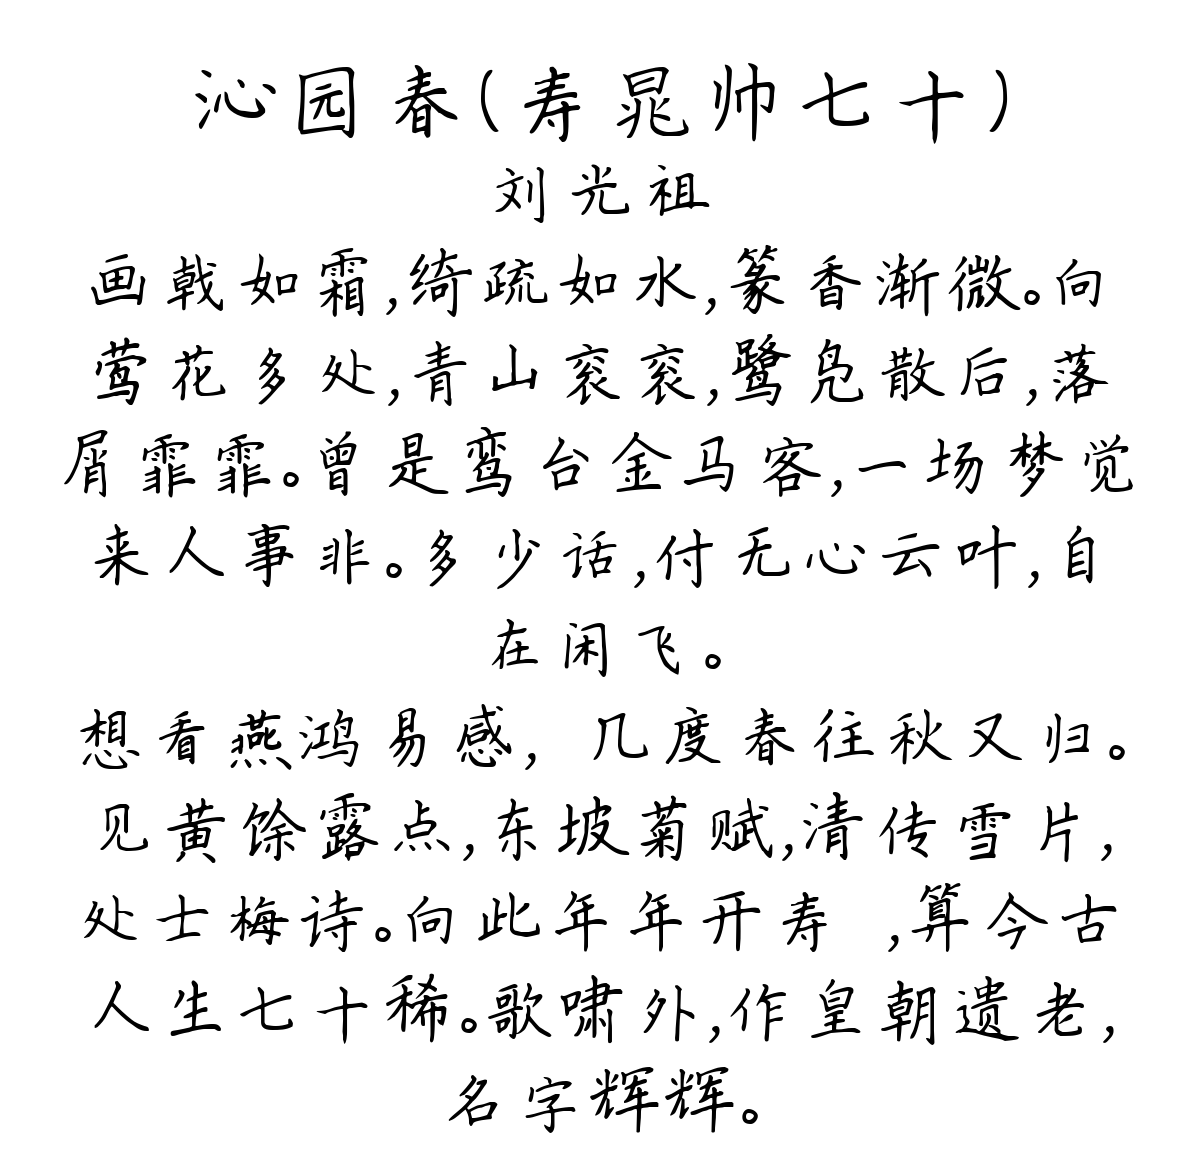 沁园春(寿晁帅七十)
刘光祖
画戟如霜,绮疏如水,篆香渐微。向
莺花多处,青山衮衮,鹭凫散后,落
屑霏霏。曾是鸾台金马客,一场梦觉
来人事非。多少话,付无心云叶,自
在闲飞。
想看燕鸿易感, 几度春往秋又归。
见黄馀露点,东坡菊赋,清传雪片,
处士梅诗。向此年年开寿 ,算今古
人生七十稀。歌啸外,作皇朝遗老,
名字辉辉。